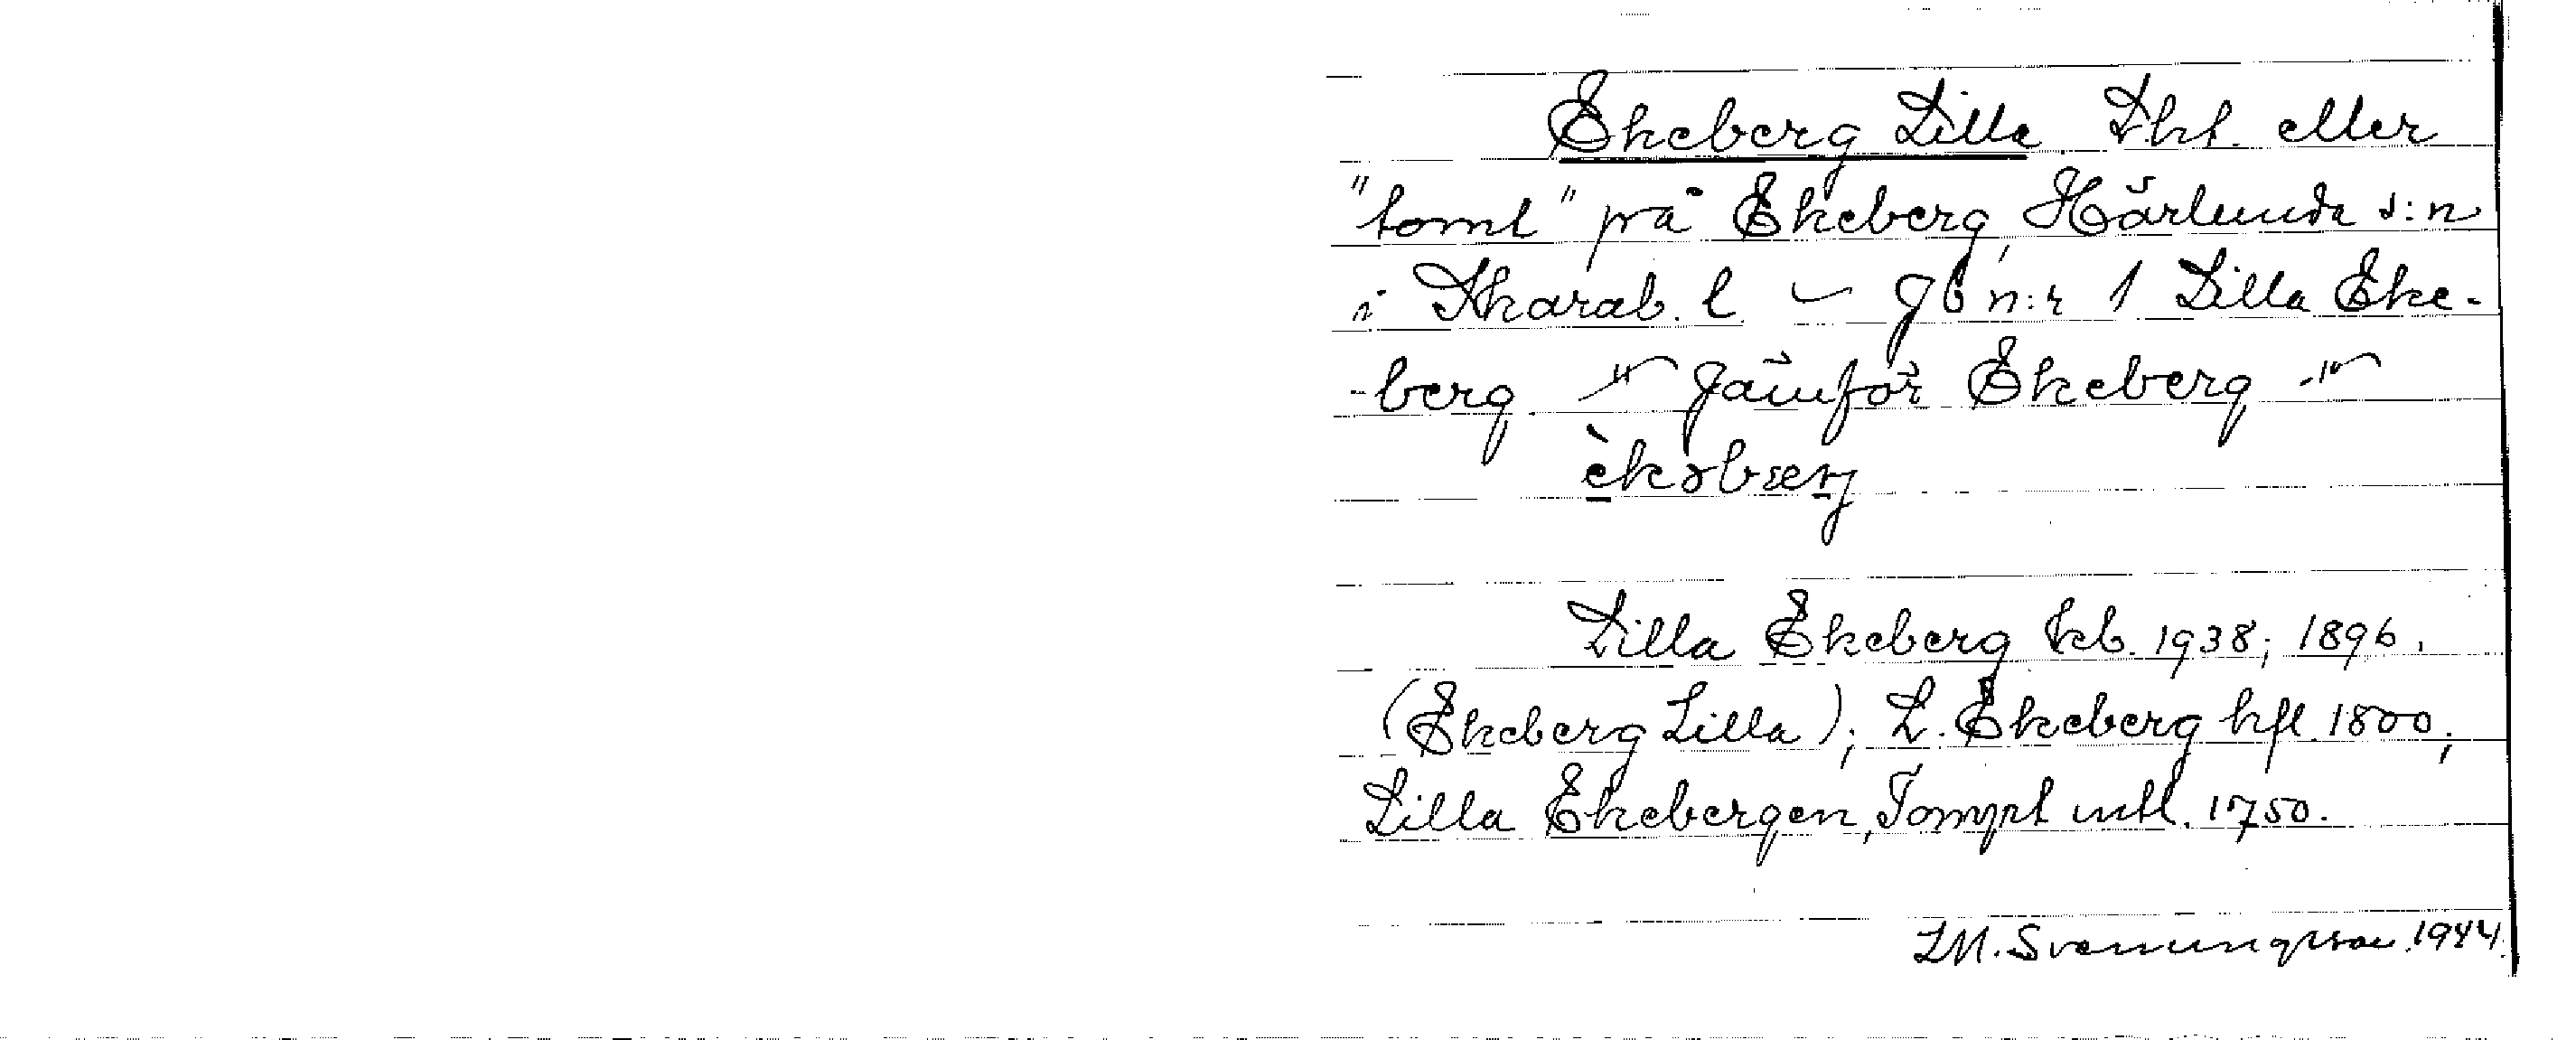 Ekeberg Lilla. Lht. eller
"tomt" på Ekeberg, Härlunda s:n
i Skarab. l. – Jb n:r 1 Lilla Eke-
-berg. –"– Jämför Ekeberg –"–
èkəbærj
Lilla Ekeberg kb. 1938; 1896.
(Ekeberg Lilla); L. Ekeberg hfl. 1800;
Lilla Ekebergen, Tompt mtl. 1750.
LM. Svenungsson 1944.